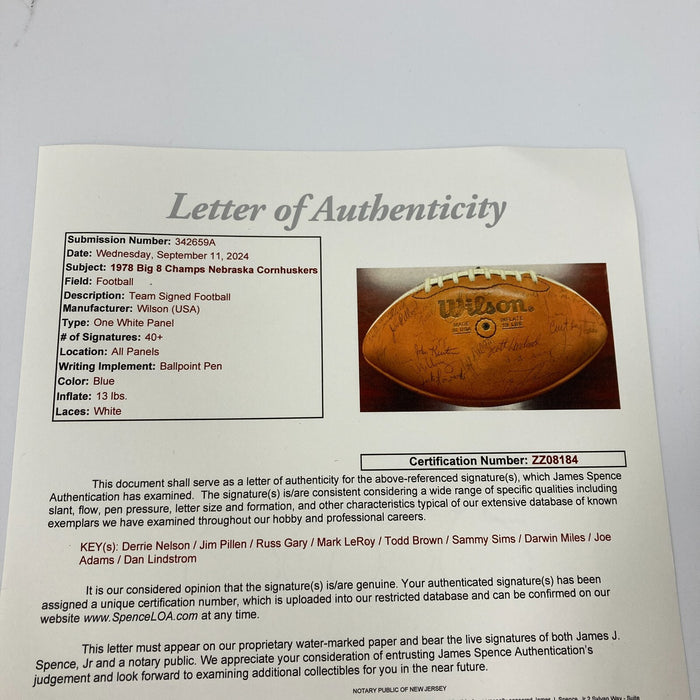 Letter of Authenticity
Submission Number: 342659A
Date: Wednesday, September 11, 2024
Subject: 1978 Big 8 Champs Nebraska Cornhuskers
Field: Football
Description: Team Signed Football
Manufacturer: Wilson (USA)
Type: One White Panel
# of Signatures: 40+
Location: All Panels
Writing Implement: Ballpoint Pen
Color: Blue
Inflate: 13 lbs.
Laces: White
Wilson.
MADE IN USA
INFLATE 13 LBS.
Certification Number: ZZ08184
This document shall serve as a letter of authenticity for the above-referenced signature(s), which James Spence
Authentication has examined. The signature(s) is/are consistent considering a wide range of specific qualities including
slant, flow, pen pressure, letter size and formation, and other characteristics typical of our extensive database of known
exemplars we have examined throughout our hobby and professional careers.
KEY(s): Derrie Nelson / Jim Pillen / Russ Gary / Mark LeRoy / Todd Brown / Sammy Sims / Darwin Miles / Joe
Adams / Dan Lindstrom
It is our considered opinion that the signature(s) is/are genuine. Your authenticated signature(s) has been
assigned a unique certification number, which is uploaded into our restricted database and can be confirmed on our
website www.SpenceLOA.com at any time.
This letter must appear on our proprietary water-marked paper and bear the live signatures of both James J.
Spence, Jr and a notary public. We appreciate your consideration of entrusting James Spence Authentication's
judgement and look forward to examining additional collectibles for you in the near future.
NOTARY PUBLIC OF NEW JERSEY